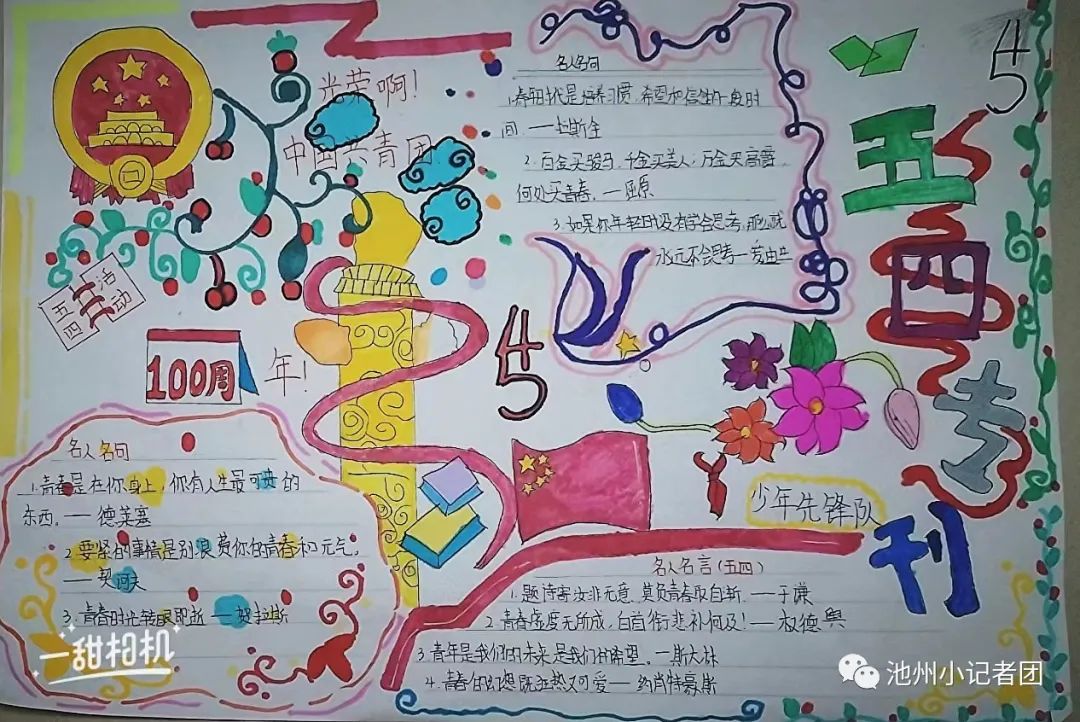 光荣啊!
中国共青团
五四
活动
100周
年!
名人名句
1.青春时代是培养习惯,希望和信生的一段时
间.——拉斯金
2.百金买骏马,千金买美人;万金买高爵,
何处买青春.——屈原
3.如果你年轻时没有学会思考,那么就
永远不会思考——爱迪生
5
4
五四专刊
5
4
名人名句
1.青春是在你身上,你有人生最可贵的
东西.——德莱塞
2.要紧的事情是别浪费你的青春和元气。
——契诃夫
3.青春时光转眼即逝——贺拉斯
少年先锋队
名人名言(五四)
1.题诗寄汝非无意,莫负青春取自惭.——于谦
2.青春虚度无所成,白首衔悲补何及!——权德舆
3.青年是我们的未来是我们的希望.——斯大林
4.青春的幻想既狂热又可爱——约肖特豪斯
一甜相机
池州小记者团